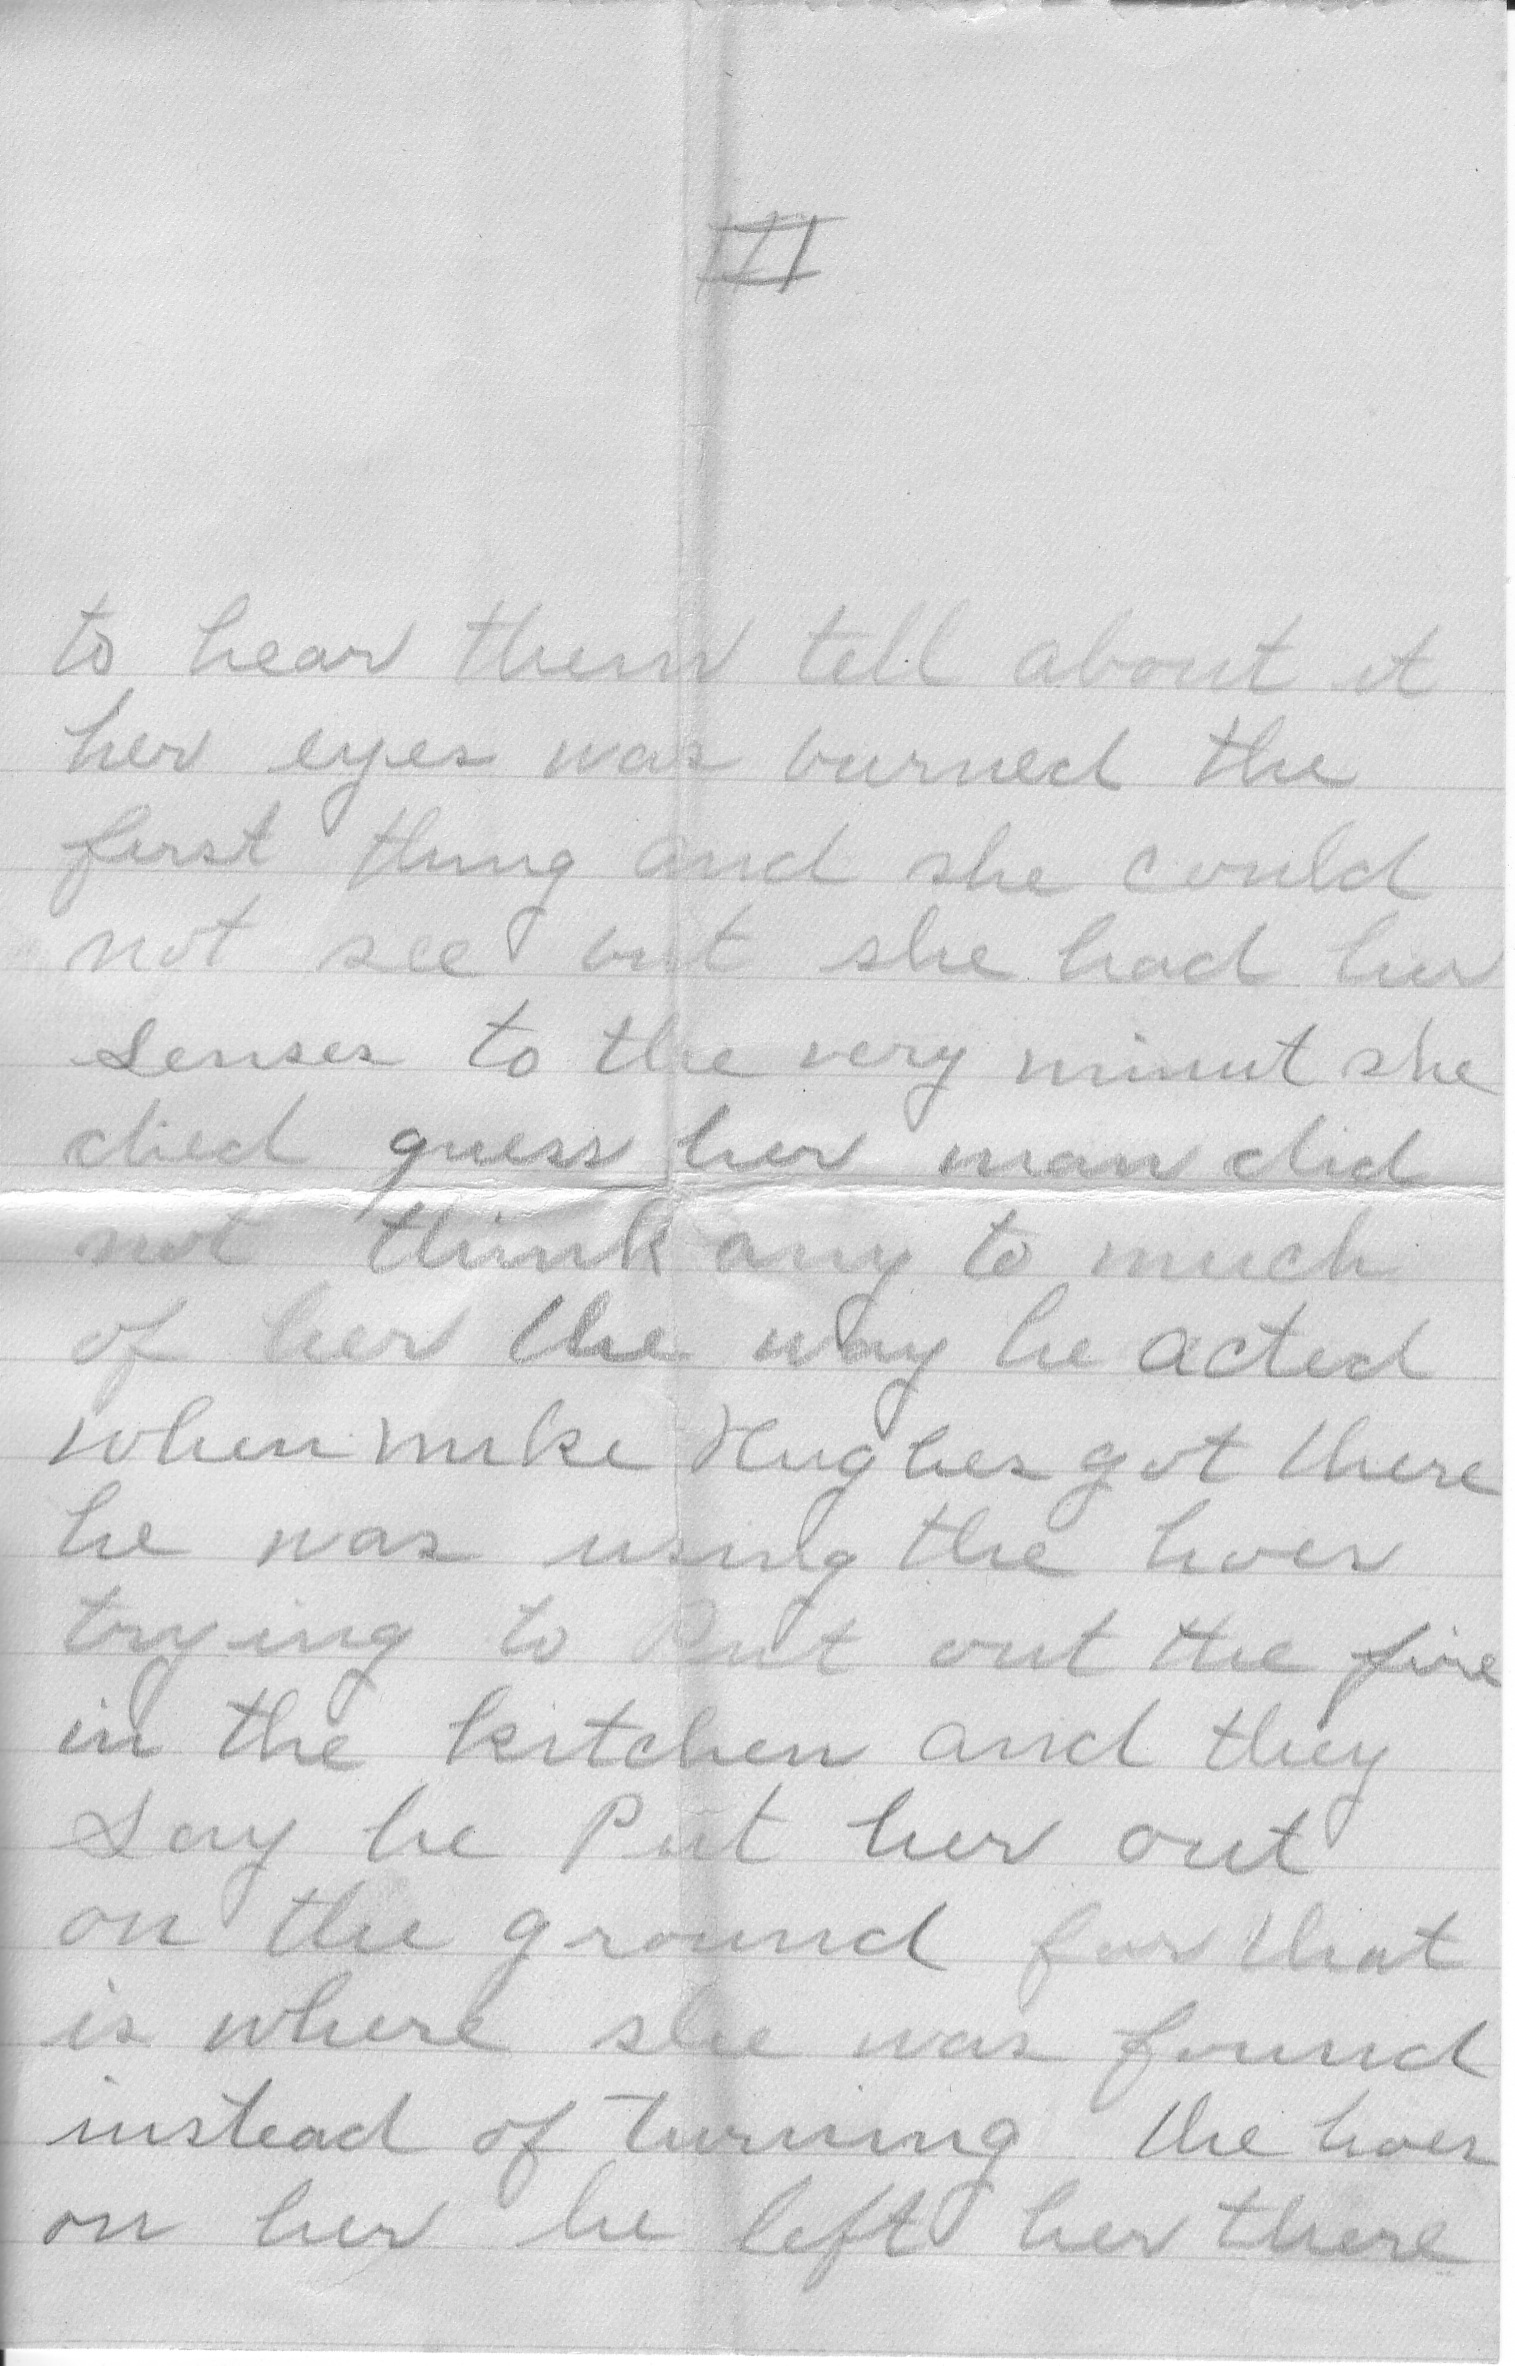 VI
to hear them tell about it
her eyes was burned the
first thing and she could
not see but she had her
senses to the very minut she
died guess her man did
not think any to much
of her the way he acted
when mike Hughes got there
he was using the hoes
trying to Put out the fire
in the kitchen and they
Say he Put her out
on the ground for that
is where she was found
instead of turning the hoes
on her he left her there